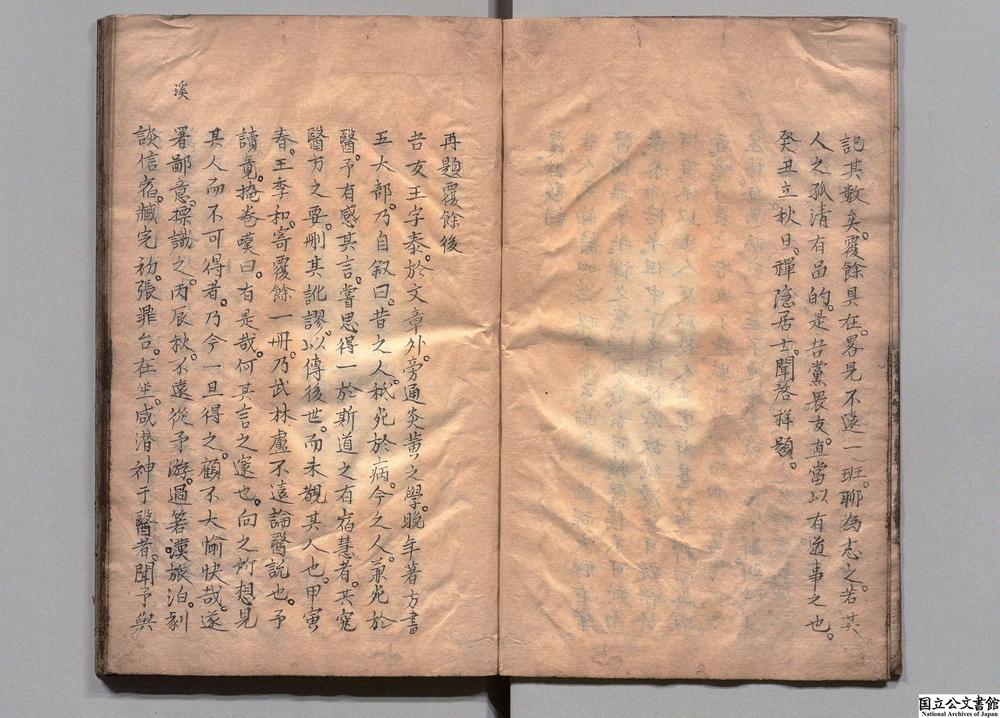 記其數矣。覆餘具在。畧見不遠一班。聊為志之。若其
人之孤清有品的。是吾黨畏友。直當以有道事之也。
癸丑立秋日。禪隱居士。聞啓祥題。
再題覆餘後
吾友王宇泰。於文章外。旁通炎黃之學。晚年著方書
五大部。乃自敘曰。昔之人。秖死於病。今之人。兼死於
醫。予有感其言。嘗思得一於斯道之有宿慧者。其窕
醫方之要。刪其訛謬。以傳後世。而未覩其人也。甲寅
春。王季和。寄覆餘一冊。乃武林盧不遠論醫説也。予
讀竟。掩卷嘆曰。有是哉。何其言之邃也。向之所想見
其人而不可得者。乃今一旦得之。顧不大愉快哉。遂
署鄙意。摽識之。丙辰秋。不遠從予游。過箬漢旅泊。剡
溪
談信宿。臧完初。張罪台。在坐。咸潛神于醫者。聞予與
国立公文書館
National Archives of Japan